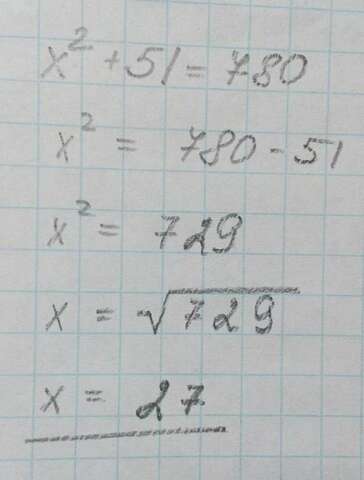 x² + 51 = 780
x² = 780 - 51
x² = 729
x = √729
x = 27